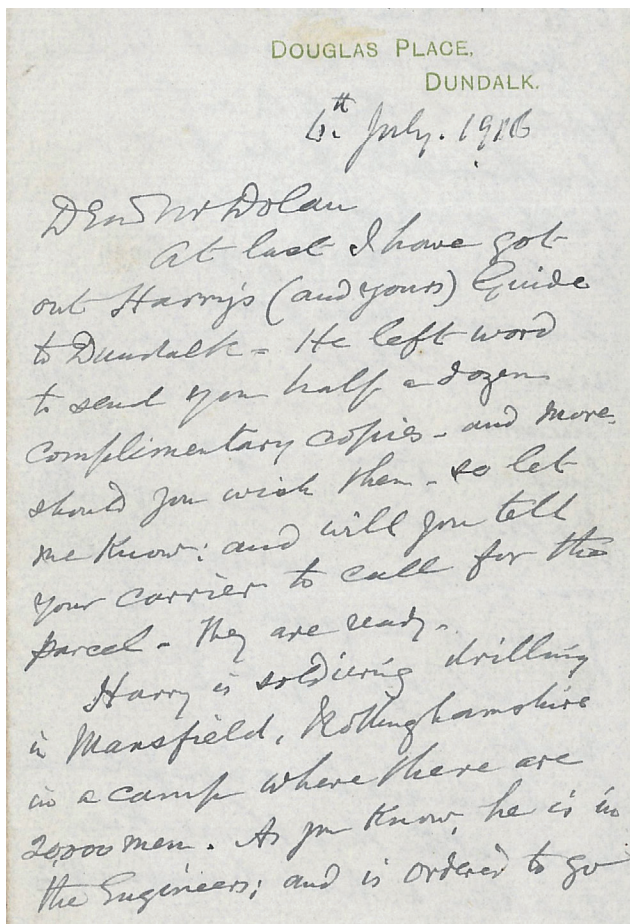 DOUGLAS PLACE,
DUNDALK.
4th July. 1916
Dear Mr Dolan
At last I have got
out Harry's (and yours) Guide
to Dundalk - He left word
to send you half a dozen
complimentary copies - and more
should you wish them - so let
me know: and will you tell
your carrier to call for the
parcel - They are ready.
Harry is soldiering drilling
in Mansfield, Nottinghamshire
in a camp where there are
20,000 men. As you know, he is in
the Engineers; and is ordered to go